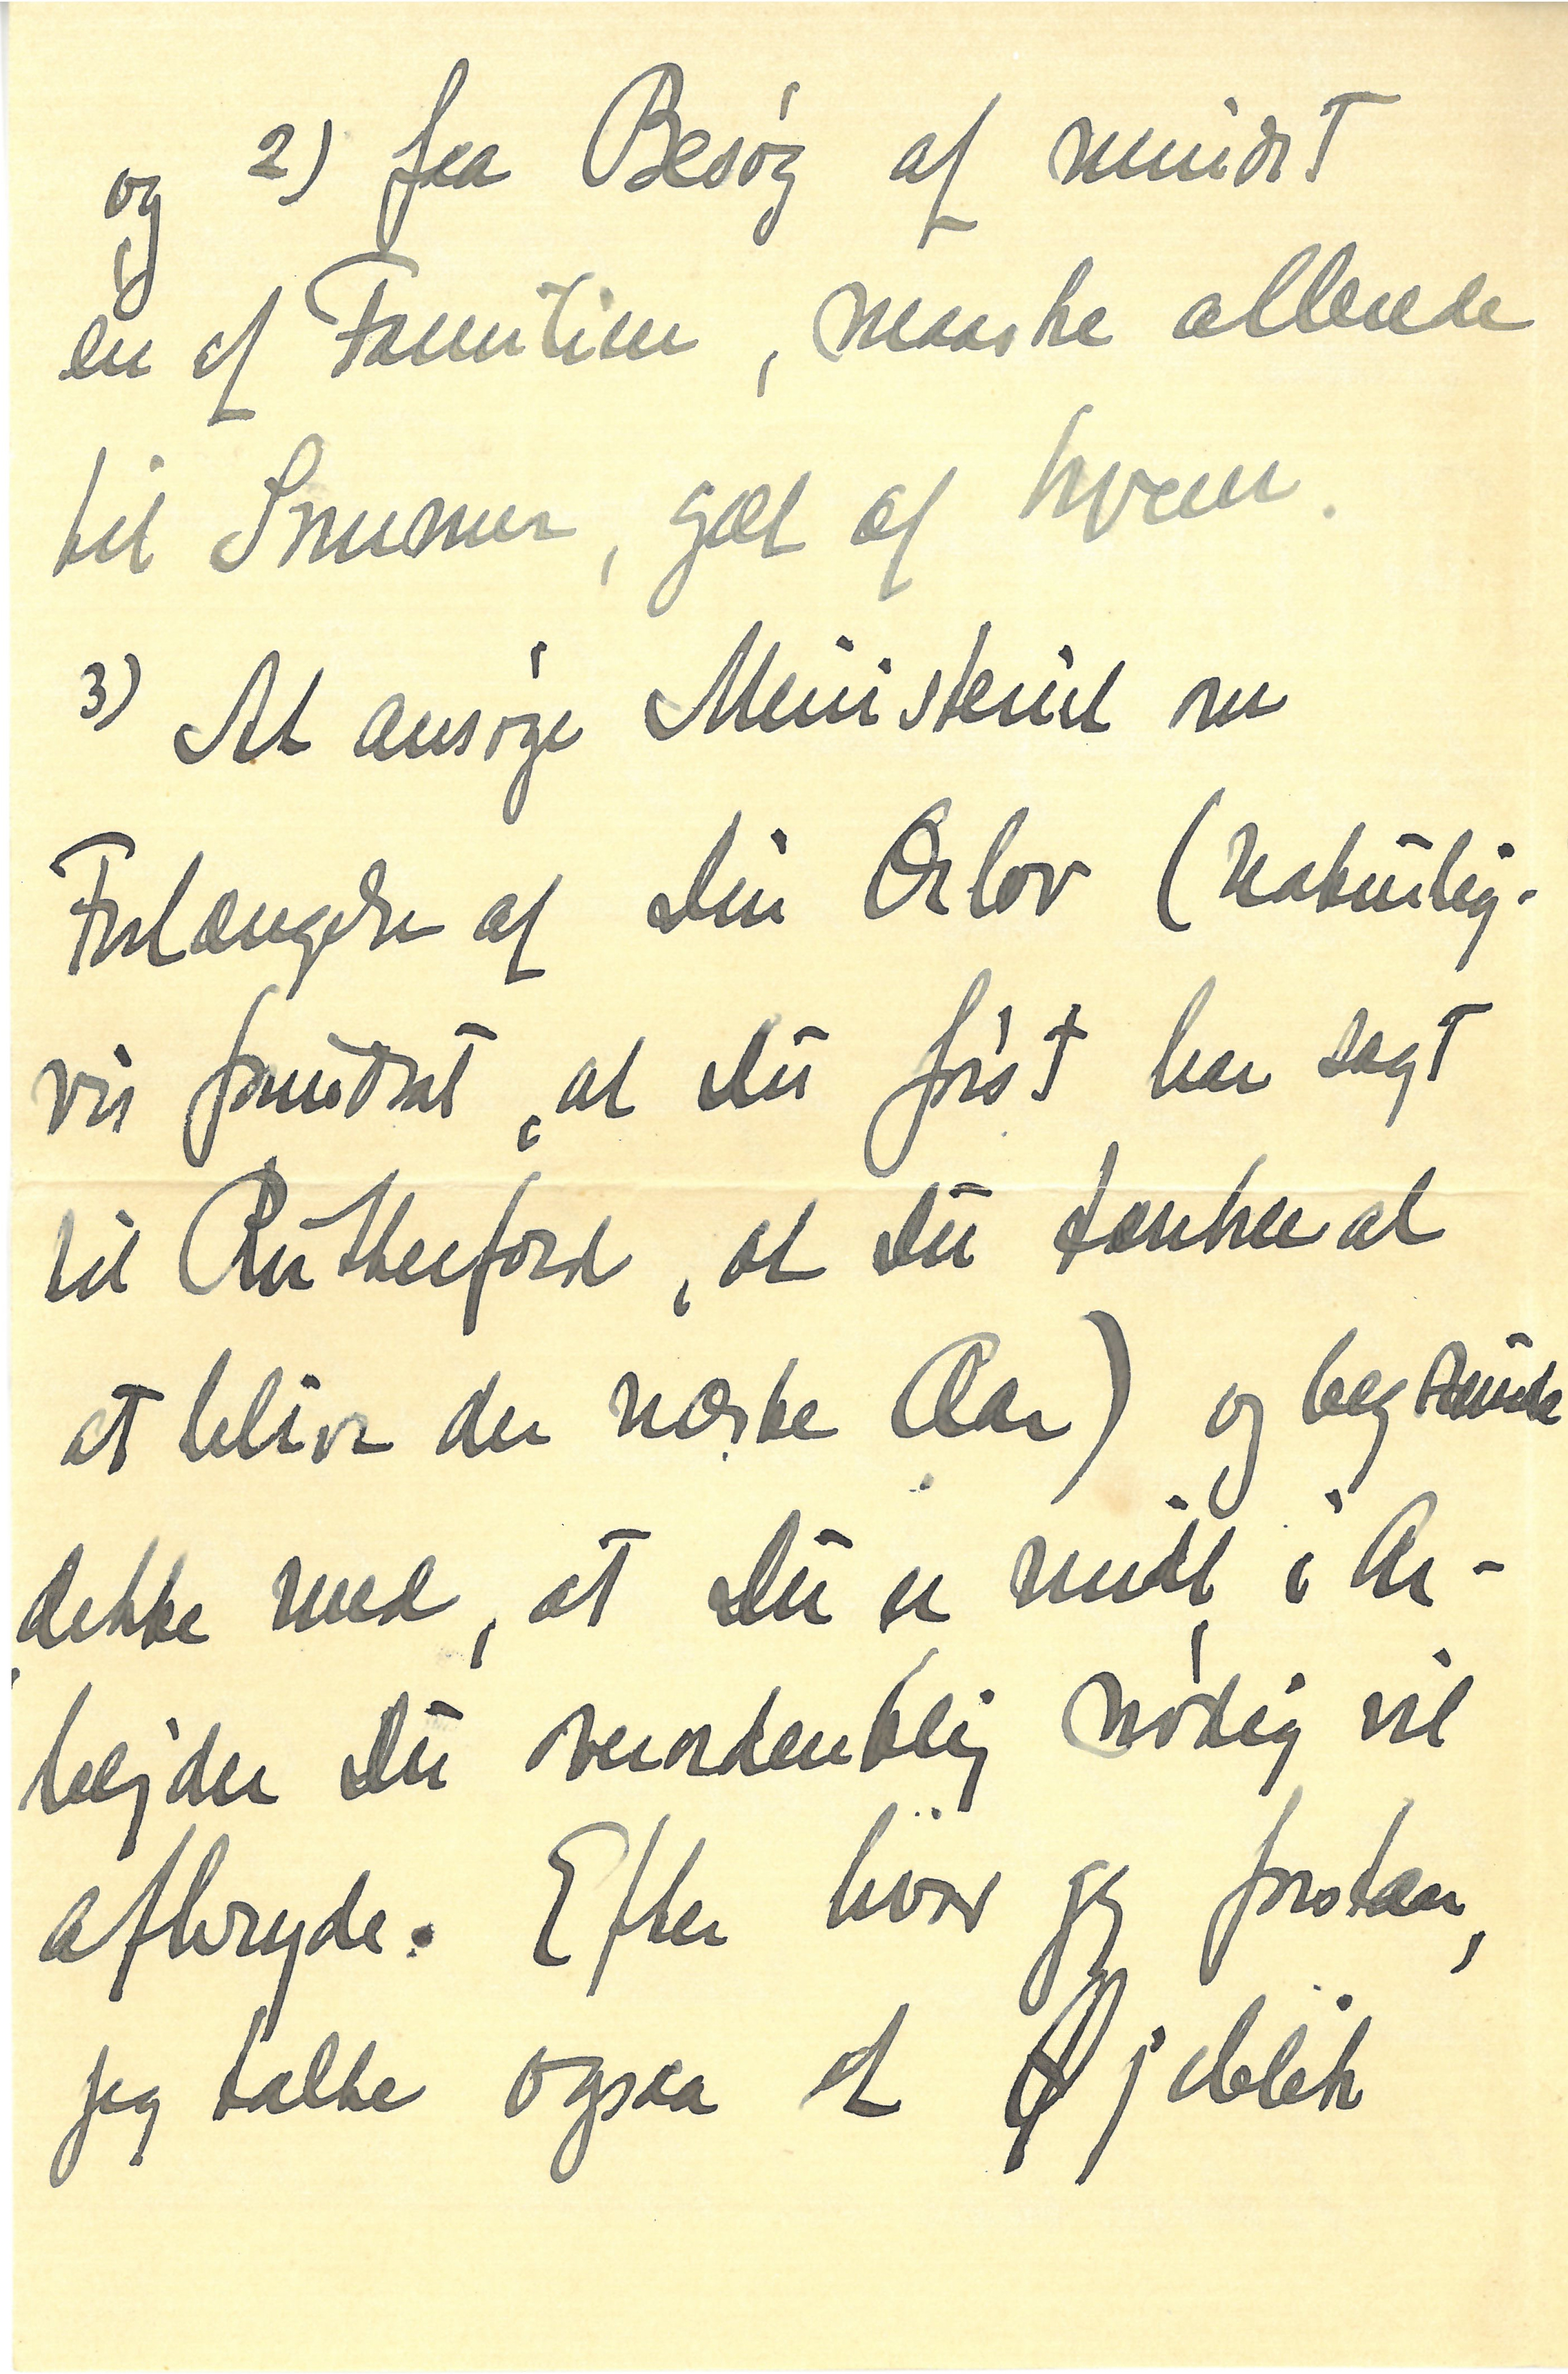 og 2) faa Besøg af mindst
en af Familien, maaske allerede
til Sommer, gæt af hvem.
3) At ansøge Ministeriet om
Forlængelse af Din Orlov (naturlig-
vis forudsat, at Du først har sagt
til Rutherford, at Du tænker at
at blive der næste Aar) og begrunde
dette med, at Du er midt i Ar-
bejder Du overordentlig nødig vil
afbryde. Efter hvad jeg forstaar,
jeg talte ogsaa et Øjeblik